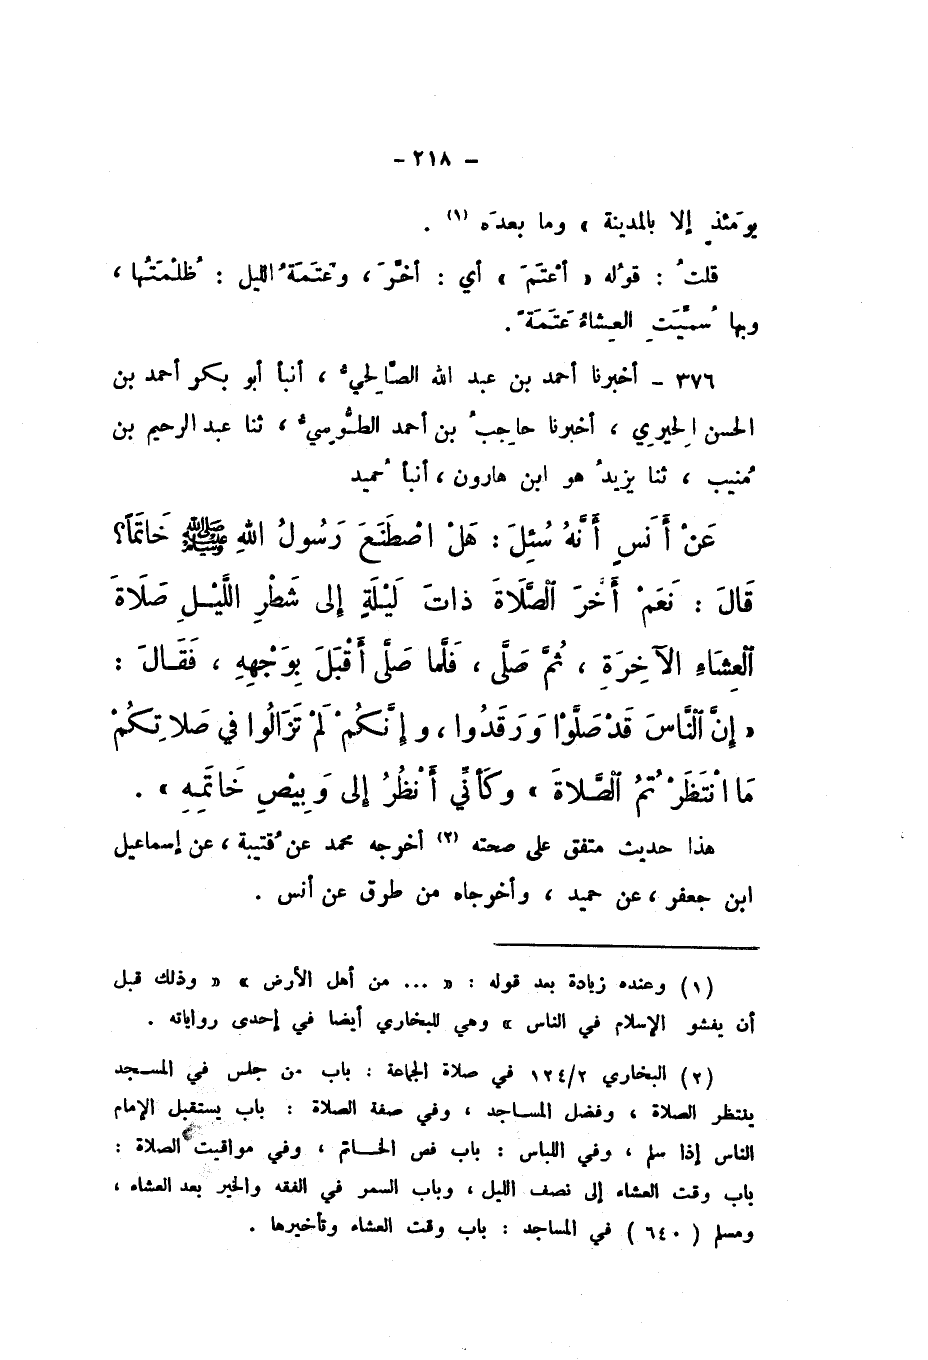 - ٢١٨ -
يومَئذٍ إلا بالمدينة » وما بعدَه (١) .
قلتُ : قولُه « أعْتَمَ » أي : أخَّرَ ، وعَتَمَةُ الليل : ظُلْمَتُها ،
وبها سُمِّيَتِ العِشاءُ عَتَمَةً .
٣٧٦ - أخبرنا أحمد بن عبد الله الصَّالحيُّ ، أنبأ أبو بكر أحمد بن
الحسن الحِيرِي ، أخبرنا حاجِبُ بن أحمد الطُّوسيُّ ، ثنا عبد الرحيم بن
مُنيب ، ثنا يزيدُ هو ابن هارون ، أنبأ حُميد
عَنْ أَنَسٍ أَنَّهُ سُئِلَ : هَلْ اصْطَنَعَ رَسُولُ اللهِ ﷺ خَاتَمًا؟
قَالَ : نَعَمْ أَخَّرَ الصَّلَاةَ ذاتَ لَيْلَةٍ إلى شَطْرِ اللَّيْلِ صَلَاةَ
الْعِشَاءِ الآخِرَةِ ، ثُمَّ صَلَّى ، فَلَمَّا صَلَّى أَقْبَلَ بِوَجْهِهِ ، فَقَالَ :
« إنَّ النَّاسَ قَدْ صَلَّوْا وَرَقَدُوا ، وإنَّكُمْ لَمْ تَزَالُوا في صَلاتِكُمْ
مَا انْتَظَرْتُمُ الصَّلاةَ » وكَأنِّي أَنْظُرُ إلى وَبِيْصِ خَاتَمِهِ » .
هذا حديث متفق على صحته (٢) أخرجه محمد عن قُتيبة ، عن إسماعيل
ابن جعفر ، عن حميد ، وأخرجاه من طرق عن أنس .
(١) وعنده زيادة بعد قوله : « ... من أهل الأرض » « وذلك قبل
أن يفشو الإسلام في الناس » وهي للبخاري أيضا في إحدى رواياته .
(٢) البخاري ١٢٤/٢ في صلاة الجماعة : باب من جلس في المسجد
ينتظر الصلاة ، وفضل المساجد ، وفي صفة الصلاة : باب يستقبل الإمام
الناس إذا سلم ، وفي اللباس : باب فص الخاتم ، وفي مواقيت الصلاة :
باب وقت العشاء إلى نصف الليل ، وباب السمر في الفقه والخير بعد العشاء ،
ومسلم ( ٦٤٠ ) في المساجد : باب وقت العشاء وتأخيرها .